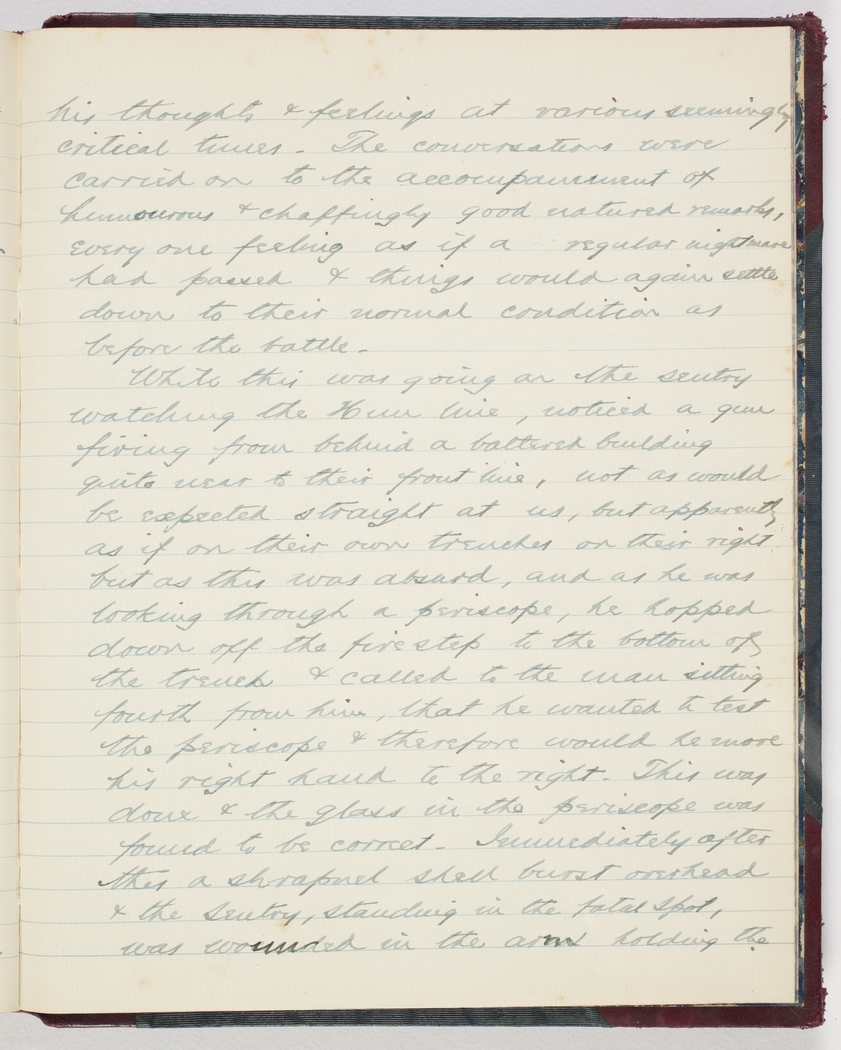 his thoughts & feelings at various seemingly
critical times. The conversations were
carried on to the accompaniment of
humourous & chaffingly good natured remarks,
every one feeling as if a regular nightmare
had passed & things would again settle
down to their normal condition as
before the battle.
While this was going on the sentry
watching the Hun line, noticed a gun
firing from behind a battered building
quite near to their front line, not as would
be expected straight at us, but apparently
as if on their own trenches on their right
but as this was absurd, and as he was
looking through a periscope, he hopped
down off the fire step to the bottom of
the trench & called to the man sitting
fourth from him, that he wanted to test
the periscope & therefore would he move
his right hand to the right. This was
done & the glass in the periscope was
found to be correct. Immediately after
this a shrapnel shell burst overhead
& the sentry, standing in the fatal spot,
was wounded in the arm holding the